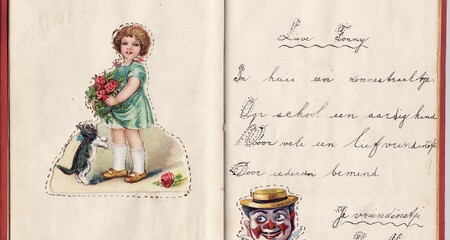 Lieve Fonny
In huis een zonnestraaltje
Op school een aardig kind
Voor vele een lief vriendinnetje
Door iedereen bemind
Je vriendinnetje